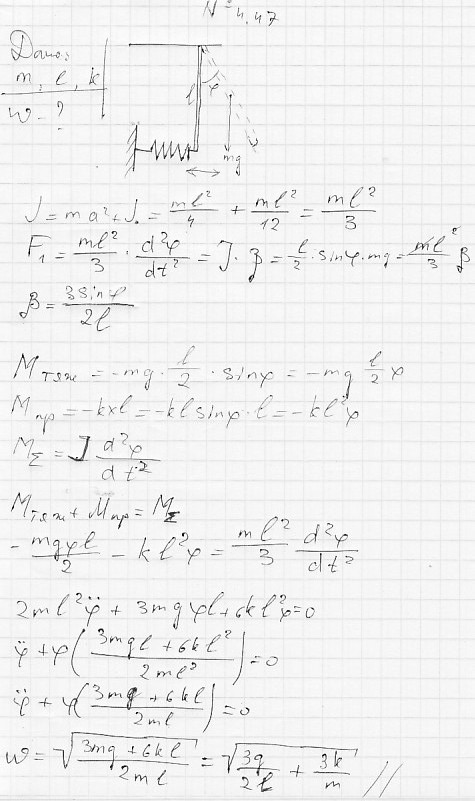 № 4.47
Дано:
m, l, k
w - ?
l φ
mg
J = ma² + J₀ = ml²/4 + ml²/12 = ml²/3
F₁ = ml²/3 · d²φ/dt² = J · β = l/2 · sinφ · mg = ml²/3 β
β = 3sinφ/2l
Mтяж = -mg · l/2 · sinφ = -mg l/2 φ
Mпр = -kxl = -kl sinφ · l = -kl²φ
MΣ = J d²φ/dt²
Mтяж + Mпр = MΣ
-mgφl/2 - kl²φ = ml²/3 d²φ/dt²
2ml²φ̈ + 3mgφl + 6kl²φ = 0
φ̈ + φ(3mgl + 6kl²/2ml²) = 0
φ̈ + φ(3mg + 6kl/2ml) = 0
w = √(3mg + 6kl/2ml) = √(3g/2l + 3k/m) //